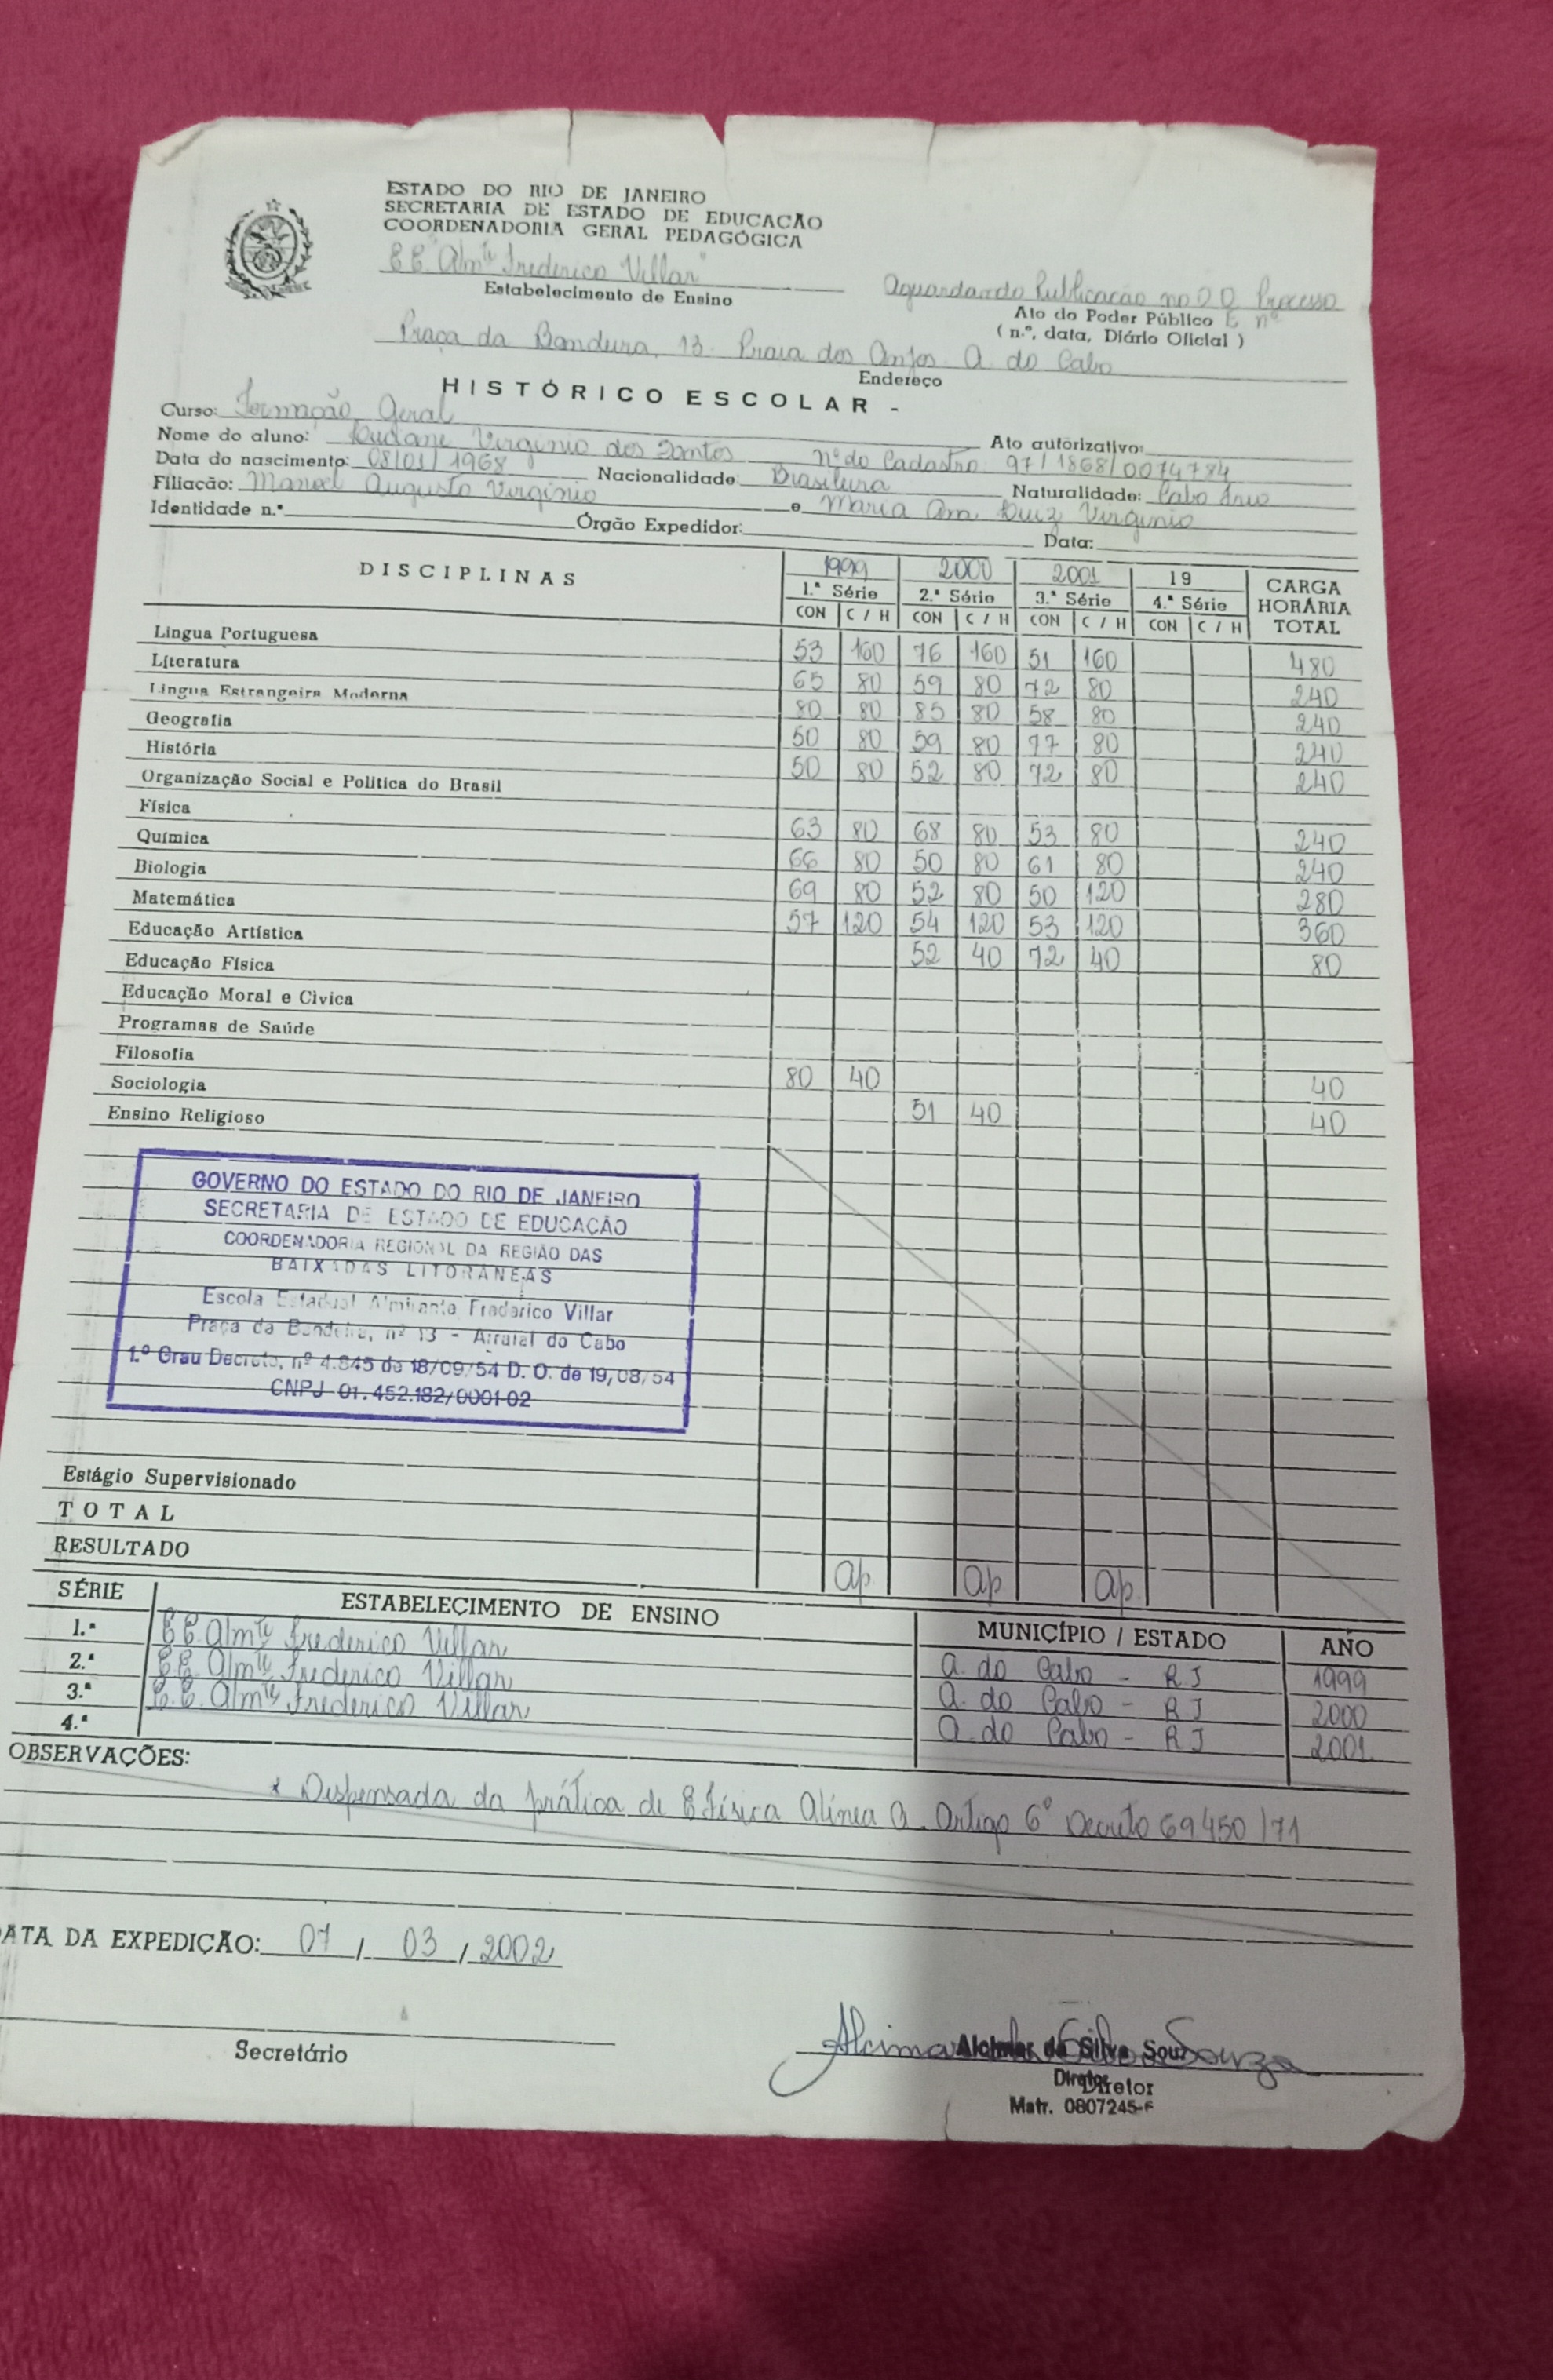 ESTADO DO RIO DE JANEIRO
SECRETARIA DE ESTADO DE EDUCAÇÃO
COORDENADORIA GERAL PEDAGÓGICA
E E. Almte Frederico Villar"
Estabelecimento de Ensino
Aguardando Publicação no D O Processo
Ato do Poder Público E nº
( n.º, data, Diário Oficial )
Praça da Bandeira, 13. Praia dos Anjos. A. do Cabo
Endereço
HISTÓRICO ESCOLAR -
Curso: Formação Geral
Ato autorizativo:
Nome do aluno: Virginio dos Santos Nº do Cadastro 97/1868/0074784
Data do nascimento: 08/01/1968 Nacionalidade: Brasileira Naturalidade: Cabo Frio
Filiação: Manoel Augusto Virginio e Maria Ana Luiz Virginio
Identidade n.º Órgão Expedidor: Data:
DISCIPLINAS 1999 2000 2001 19 CARGA HORÁRIA TOTAL
1.ª Série 2.ª Série 3.ª Série 4.ª Série
CON C / H CON C / H CON C / H CON C / H
Lingua Portuguesa 53 160 76 160 51 160 480
Literatura 65 80 59 80 72 80 240
Lingua Estrangeira Moderna 80 80 85 80 58 80 240
Geografia 50 80 59 80 77 80 240
História 50 80 52 80 72 80 240
Organização Social e Politica do Brasil
Física 63 80 68 80 53 80 240
Química 66 80 50 80 61 80 240
Biologia 69 80 52 80 50 120 280
Matemática 57 120 54 120 53 120 360
Educação Artística 52 40 72 40 80
Educação Física
Educação Moral e Cívica
Programas de Saúde
Filosofia 80 40 40
Sociologia 51 40 40
Ensino Religioso
GOVERNO DO ESTADO DO RIO DE JANEIRO
SECRETARIA DE ESTADO DE EDUCAÇÃO
COORDENADORIA REGIONAL DA REGIÃO DAS
BAIXADAS LITORÂNEAS
Escola Estadual Almirante Frederico Villar
Praça da Bandeira, nº 13 - Arraial do Cabo
1.º Grau Decreto, nº 4.845 de 18/09/54 D. O. de 19/08/54
CNPJ 01.452.182/0001-02
Estágio Supervisionado
TOTAL
RESULTADO Ap. Ap Ap.
SÉRIE ESTABELECIMENTO DE ENSINO MUNICÍPIO / ESTADO ANO
1.ª E E. Almte Frederico Villar A. do Cabo - RJ 1999
2.ª E E. Almte Frederico Villar A. do Cabo - RJ 2000
3.ª E. E. Almte Frederico Villar A. do Cabo - RJ 2001
4.ª
OBSERVAÇÕES:
* Dispensada da prática de E Física Alínea A. Artigo 6º Decreto 69450/71
DATA DA EXPEDIÇÃO: 07 / 03 / 2002
Secretário
Alcimar da Silva Souza
Alcimar da Silva Souz
Diretor
Diretor
Matr. 0807245-6